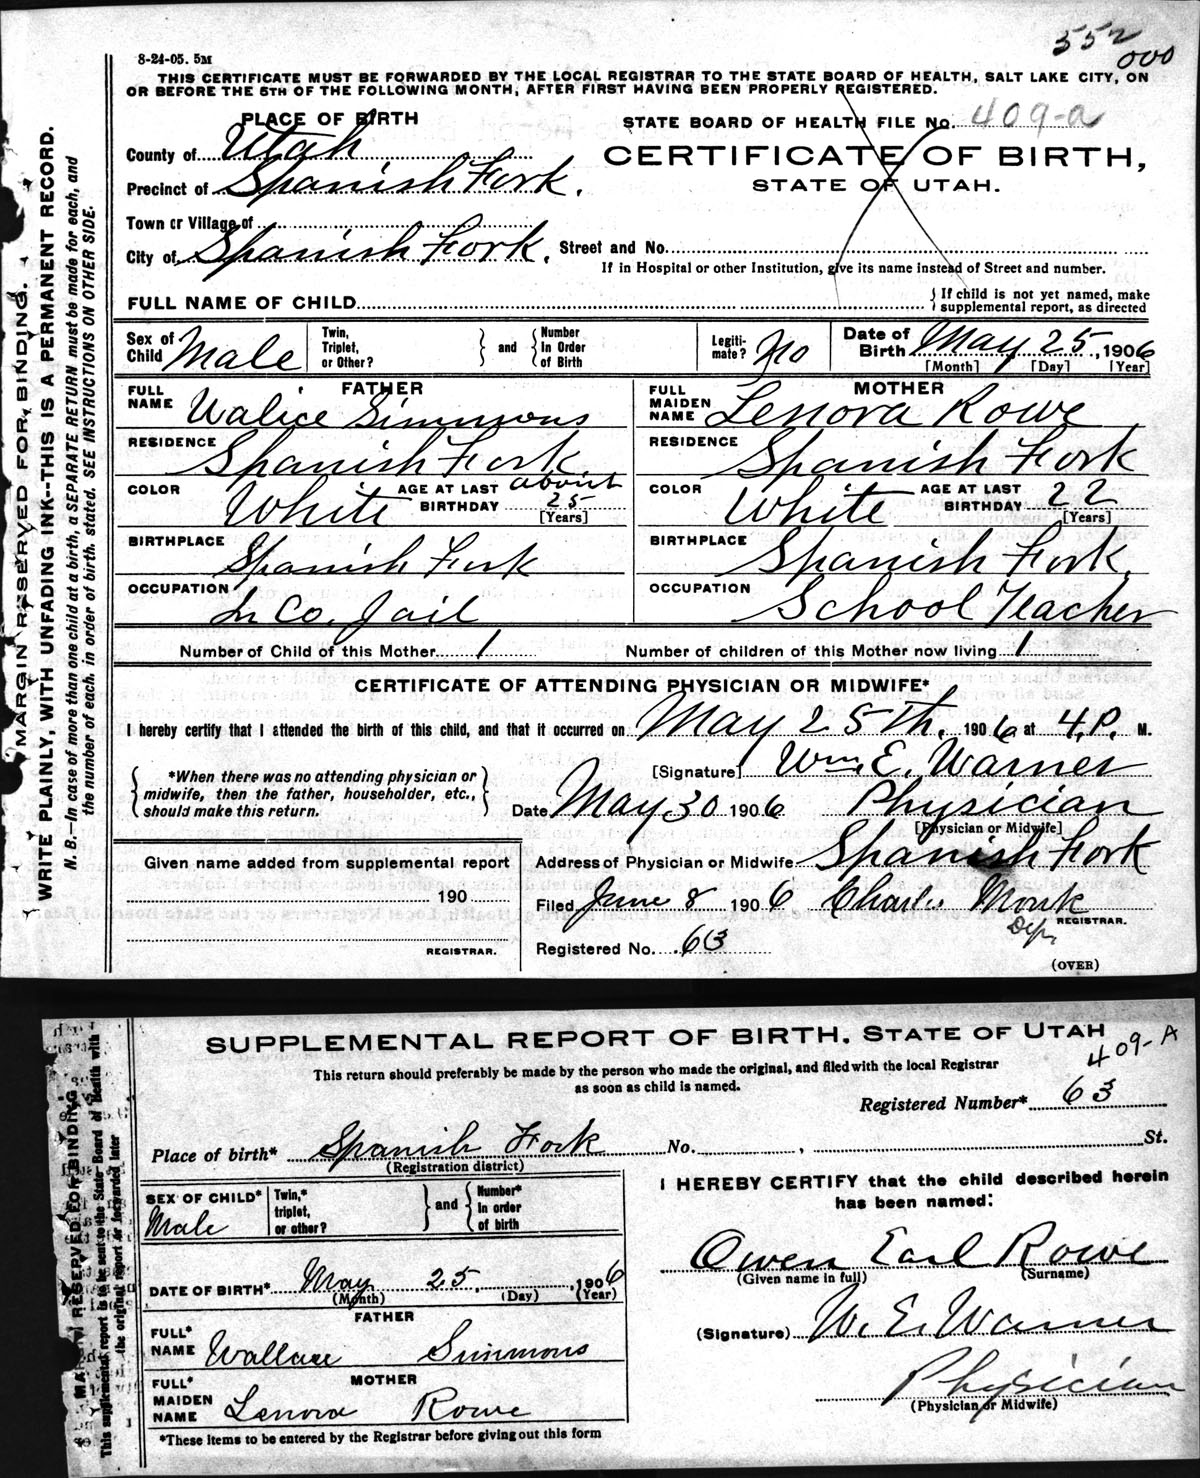 552
000
8-24-05. 5M
THIS CERTIFICATE MUST BE FORWARDED BY THE LOCAL REGISTRAR TO THE STATE BOARD OF HEALTH, SALT LAKE CITY, ON
OR BEFORE THE 5TH OF THE FOLLOWING MONTH, AFTER FIRST HAVING BEEN PROPERLY REGISTERED.
PLACE OF BIRTH
STATE BOARD OF HEALTH FILE No. 409-a
County of Utah
CERTIFICATE OF BIRTH,
Precinct of Spanish Fork.
STATE OF UTAH.
Town or Village of
City of Spanish Fork. Street and No.
If in Hospital or other Institution, give its name instead of Street and number.
FULL NAME OF CHILD
{ If child is not yet named, make
supplemental report, as directed
Sex of Child Male Twin, Triplet, or Other? } and { Number In Order of Birth Legitimate? No Date of Birth May 25, 1906
[Month] [Day] [Year]
FATHER MOTHER
FULL NAME Walice Simmons FULL MAIDEN NAME Lenora Rowe
RESIDENCE Spanish Fork RESIDENCE Spanish Fork
COLOR White AGE AT LAST BIRTHDAY about 25 [Years] COLOR White AGE AT LAST BIRTHDAY 22 [Years]
BIRTHPLACE Spanish Fork BIRTHPLACE Spanish Fork.
OCCUPATION In Co. Jail OCCUPATION School Teacher
Number of Child of this Mother 1 Number of children of this Mother now living 1
CERTIFICATE OF ATTENDING PHYSICIAN OR MIDWIFE*
I hereby certify that I attended the birth of this child, and that it occurred on May 25th, 1906 at 4, P. M.
{ *When there was no attending physician or
midwife, then the father, householder, etc.,
should make this return. }
[Signature] Wm. E. Warner
Date May 30 1906 Physician
[Physician or Midwife]
Given name added from supplemental report
190
REGISTRAR.
Address of Physician or Midwife Spanish Fork
Filed June 8 1906 Charles Monk
Dep. REGISTRAR.
Registered No. 63
(OVER)
MARGIN RESERVED FOR BINDING.
WRITE PLAINLY, WITH UNFADING INK--THIS IS A PERMANENT RECORD.
N. B.—In case of more than one child at a birth, a SEPARATE RETURN must be made for each, and
the number of each, in order of birth, stated. SEE INSTRUCTIONS ON OTHER SIDE.
SUPPLEMENTAL REPORT OF BIRTH. STATE OF UTAH
409-A
This return should preferably be made by the person who made the original, and filed with the local Registrar
as soon as child is named.
Registered Number* 63
Place of birth* Spanish Fork No. , St.
(Registration district)
SEX OF CHILD* Male Twin,* triplet, or other? } and { Number* In order of birth
DATE OF BIRTH* May 25, 1906
(Month) (Day) (Year)
FATHER
FULL* NAME Wallace Simmons
MOTHER
FULL* MAIDEN NAME Lenora Rowe
*These items to be entered by the Registrar before giving out this form
I HEREBY CERTIFY that the child described herein
has been named:
Owen Earl Rowe
(Given name in full) (Surname)
(Signature) W. E. Warner
Physician
(Physician or Midwife)
MARGIN RESERVED FOR BINDING.
This supplemental report is to be sent to the State Board of Health with
the original report or forwarded later